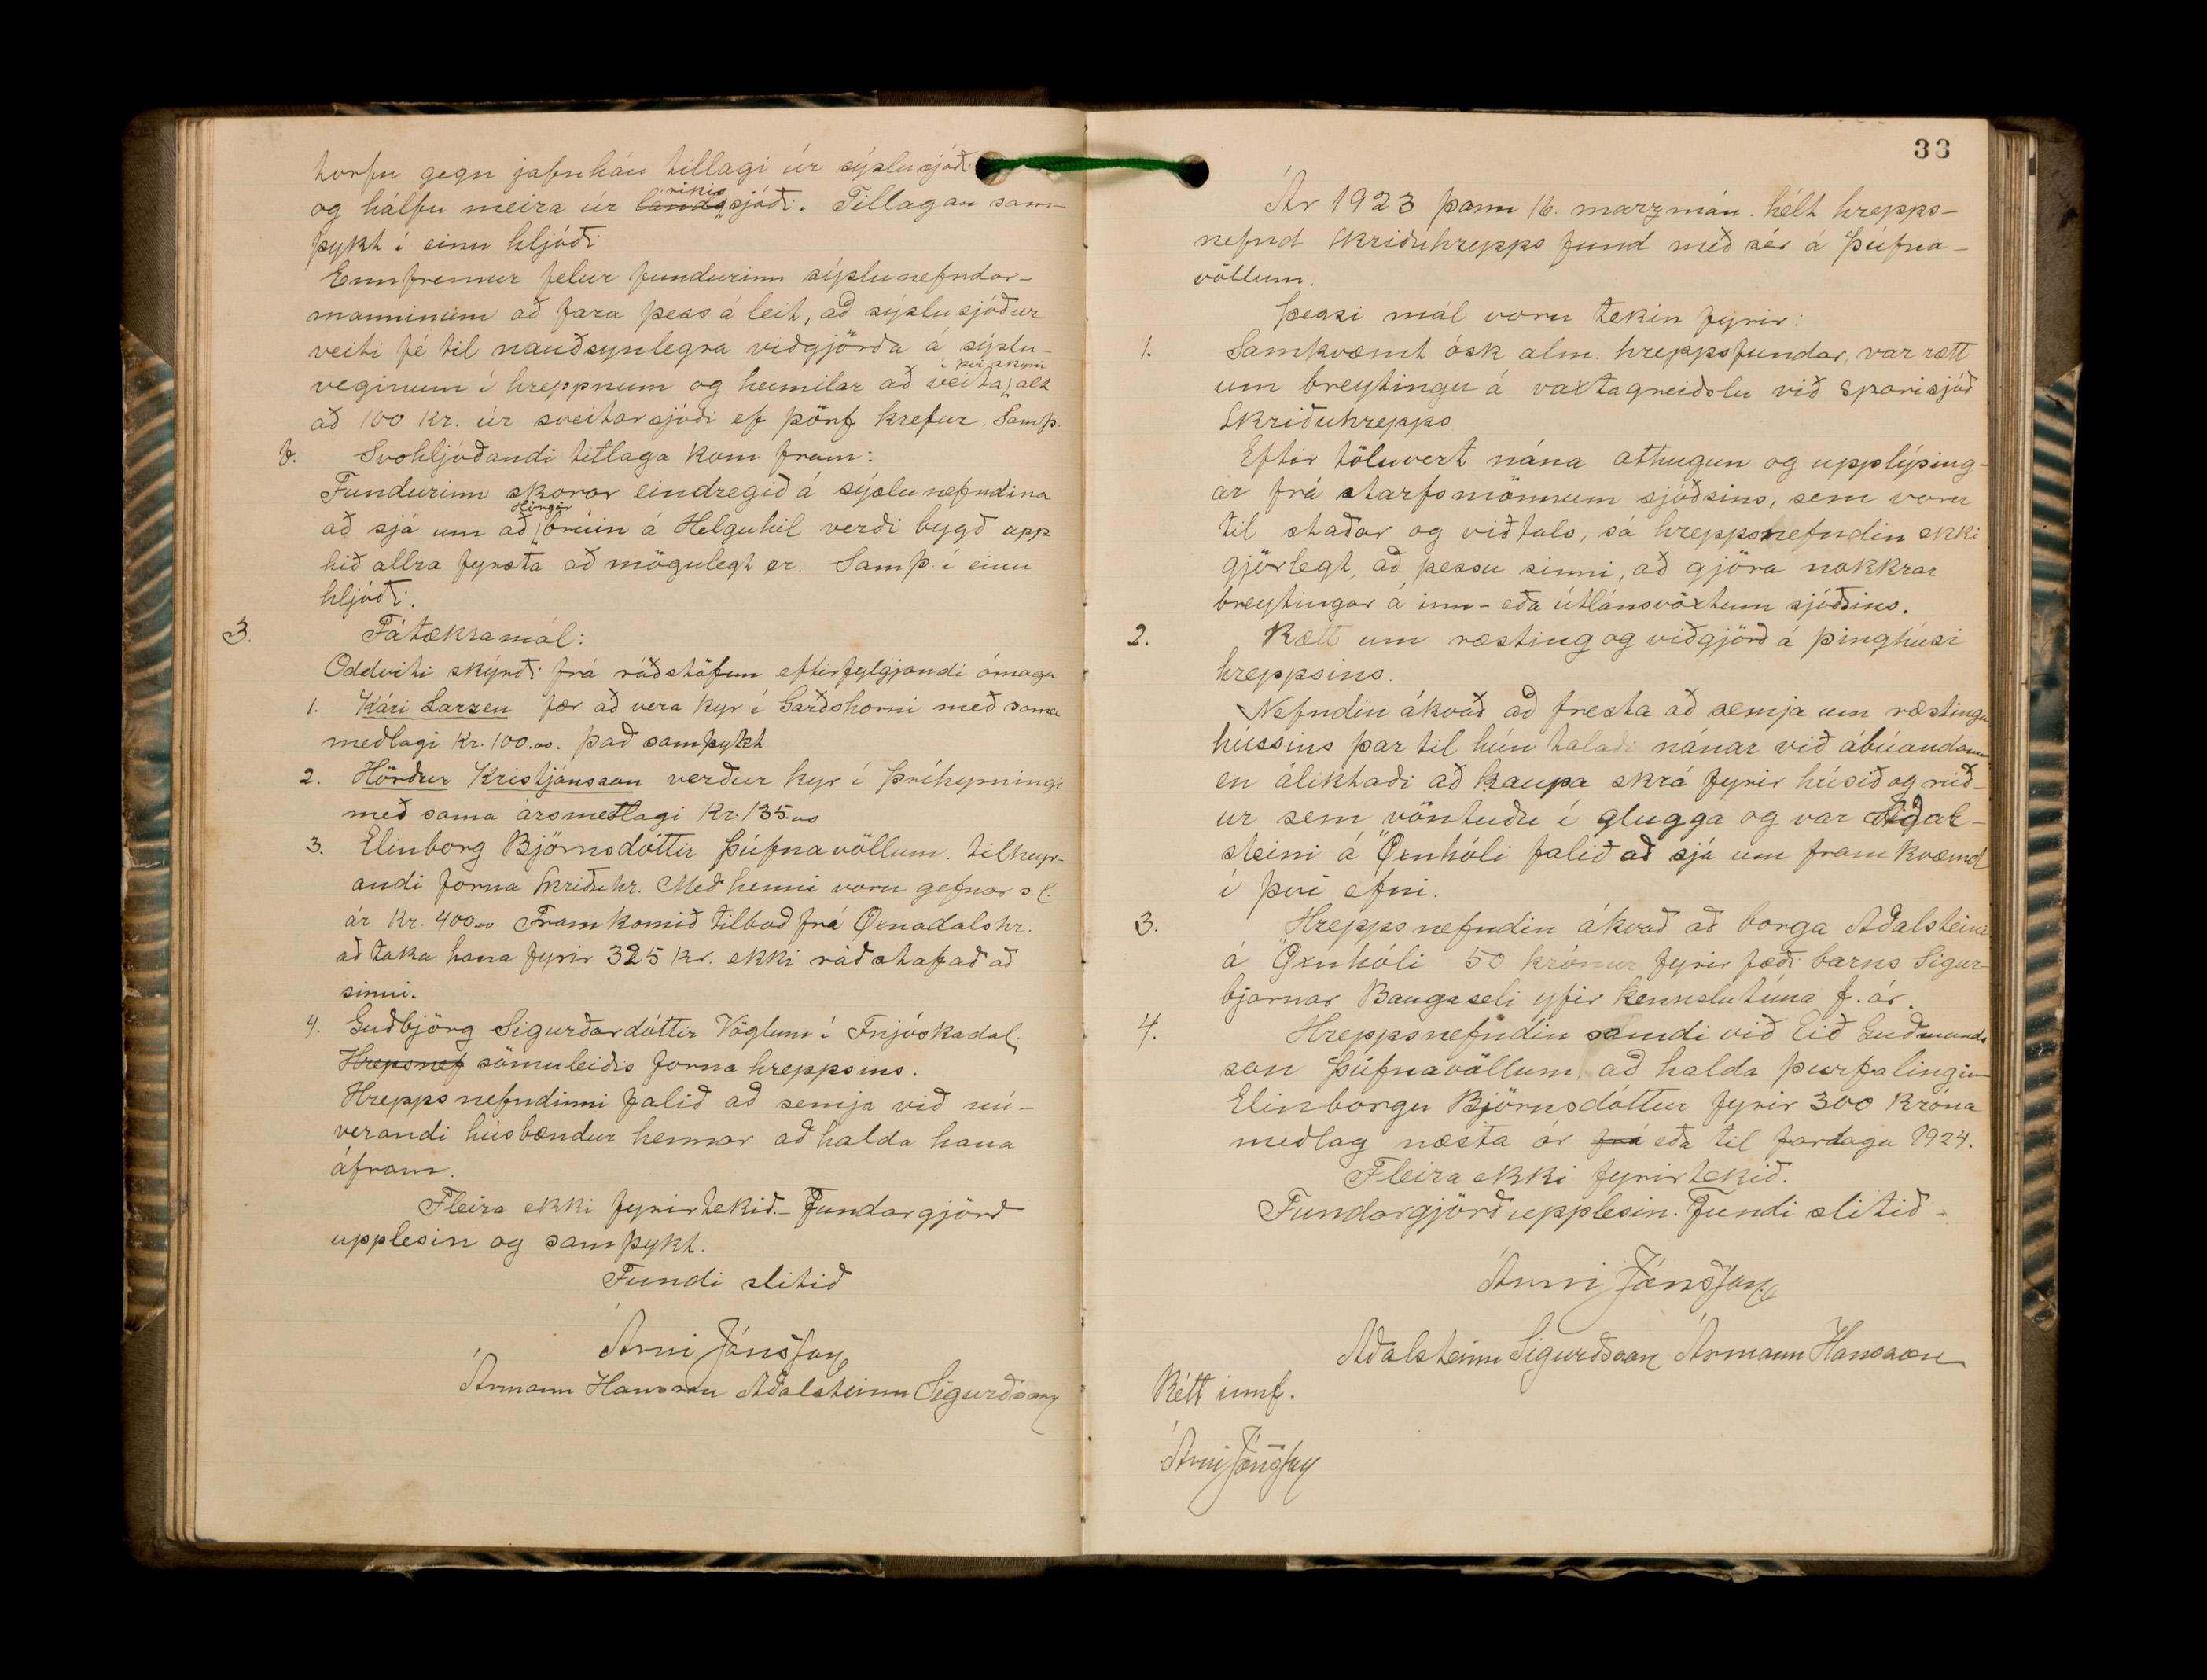 torfu gegn jafnháu tillagi úr sýslusjóði
og hálfu meira úr lands ríkis sjóði. Tillagan sam-
þykt í einu hljóði
Ennfremur felur fundurinn sýslunefndar-
manninum að fara þess á leit, að sýslusjóður
veiti fé til nauðsynlegra viðgjörða á sýslu-
veginum í hreppnum og heimilar að veita í því skyni alt
að 100 kr. úr sveitarsjóði ef þörf krefur. Samþ.
b. Svohljóðandi tillaga kom fram:
Fundurinn skorar eindregið á sýslunefndina
að sjá um að Hörgár brúin á Helguhil verði bygð upp
hið allra fyrsta að mögulegt er. Samþ. í einu
hljóði.
3. Fátækramál:
Oddviti skýrði frá ráðstöfun eftirfylgjandi ómaga
1. Kári Larzen fær að vera kyr í Garðshorni með sama
meðlagi Kr. 100.00. það samþykt
2. Hörður Kristjánsson verður kyr í Þríhyrningi
með sama ársmeðlagi Kr. 135.00
3. Elinborg Björnsdóttir Þúfnavöllum. tilheyr-
andi forna Skriðuhr. Með henni voru gefnar s.l.
ár Kr. 400.00 Framkomið tilboð frá Öxnadalshr.
að taka hana fyrir 325 kr. ekki ráðstafað að
sinni.
4. Guðbjörg Sigurðardóttir Vöglum í Fnjóskadal.
Hrepsnef sömuleiðis forna hreppsins.
Hreppsnefndinni falið að semja við nú-
verandi húsbændur hennar að halda hana
áfram.
Fleira ekki fyrirtekið. - Fundargjörð
upplesin og samþykt.
Fundi slitið
Árni Jónsson
Ármann Hansson Aðalsteinn Sigurðsson
33
Ár 1923 þann 16. marzmán. hélt hrepps-
nefnd Skriðuhrepps fund með sér á Þúfna-
völlum.
Þessi mál voru tekin fyrir:
1. Samkvæmt ósk alm. hreppsfundar, var rætt
um breytingu á vaxtagreiðslu við Sparisjóð
Skriðuhrepps
Eftir töluvert nána athugun og upplýsing-
ar frá starfsmönnum sjóðsins, sem voru
til staðar og viðtals, sá hreppsnefndin ekki
gjörlegt, að þessu sinni, að gjöra nokkrar
breytingar á inn- eða útlánsvöxtum sjóðsins.
2. Rætt um ræsting og viðgjörð á þinghúsi
hreppsins.
Nefndin ákvað að fresta að semja um ræstingu
hússins þar til hún talaði nánar við ábúandann
en áliktaði að kaupa skrá fyrir húsið og rúð-
ur sem vöntuðu í glugga og var Aðal-
steini á Öxnhóli falið að sjá um framkvæmd
í því efni.
3. Hreppsnefndin ákvað að borga Aðalsteini
á Öxnhóli 50 krónur fyrir fæði barns Sigur-
bjarnar Baugaseli yfir kenslutíma f. ár.
4. Hreppsnefndin samdi við Eið Guðmunds
son Þúfnavöllum að halda þurfalingin
Elinborgu Björnsdóttur fyrir 300 króna
meðlag næsta ár frá eða til fardaga 1924.
Fleira ekki fyrirtekið.
Fundargjörð upplesin. Fundi slitið -
Árni Jónsson
Aðalsteinn Sigurðsson Ármann Hansson
Rétt innf.
Árni Jónsson